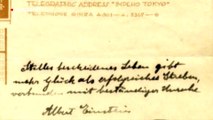 TELEGRAPHIC ADDRESS "IMPEHO TOKYO"
Stilles bescheidenes Leben gibt
mehr Glück als erfolgreiches Streben,
verbunden mit beständiger Unruhe
Albert Einstein